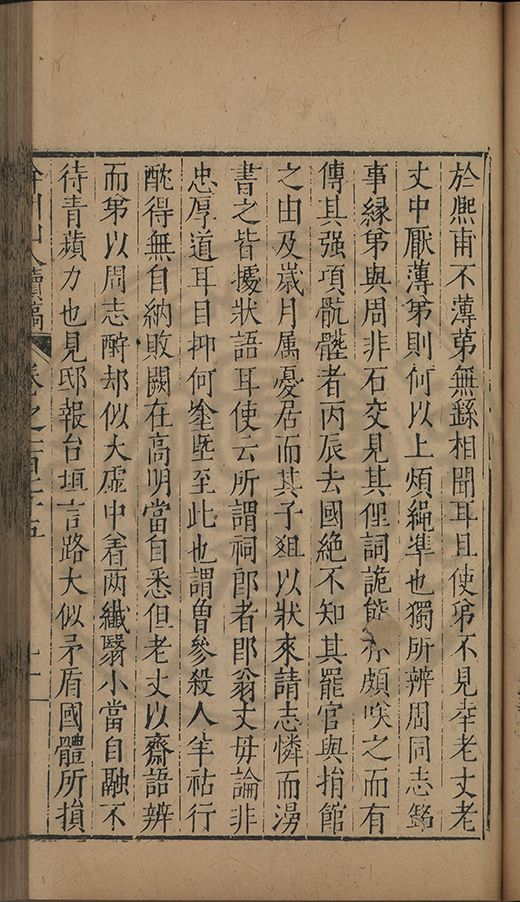 於熈甫不薄第無繇相聞耳且使第不見幸老丈老
丈中厭薄第則何以上煩繩準也獨所辨周同志銘
事縁第與周非石交見其俚詞詭態亦頗唉之而有
傳其强項骯髒者丙辰去國絶不知其罷官與捐館
之由及歲月属憂居而其子爼以狀來請志憐而湯
書之皆據狀語耳使云所謂祠郎者郎翁丈毋論非
忠厚道耳目抑何塗塈至此也謂曾參殺人羊祜行
酖得無自納敗闕在高明當自悉但老丈以齋語辨
而第以周志酧却似大虚中着两纖翳小當自融不
待青蘋力也見邸報台垣言路大似矛盾國體所損
弇州山人續稿 卷之一百